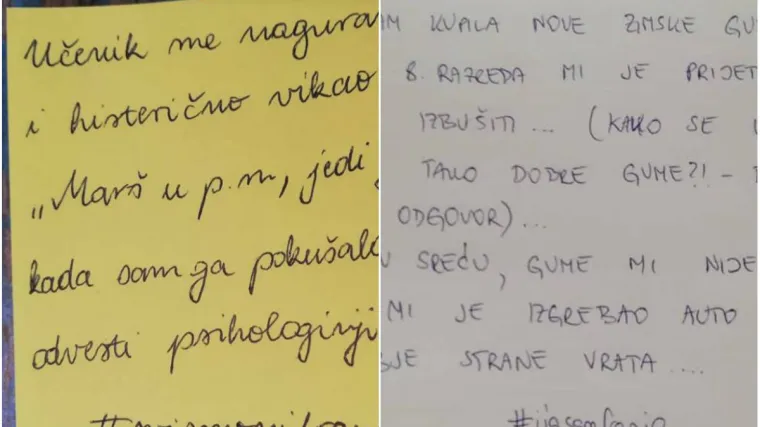 Učenik me nagurav
i histerično vikao
„Marš u p.m., jedi
kada sam ga pokušala
odvesti psihologinji
AM KUPILA NOVE ZIMSKE GU
8. RAZREDA MI JE PRIJET
IZBUŠITI ... (KAKO SE
TAKO DOBRE GUME?! -
ODGOVOR) ...
U SREĆU, GUME MI NIJE
MI JE IZGREBAO AUTO
STRANE VRATA ....